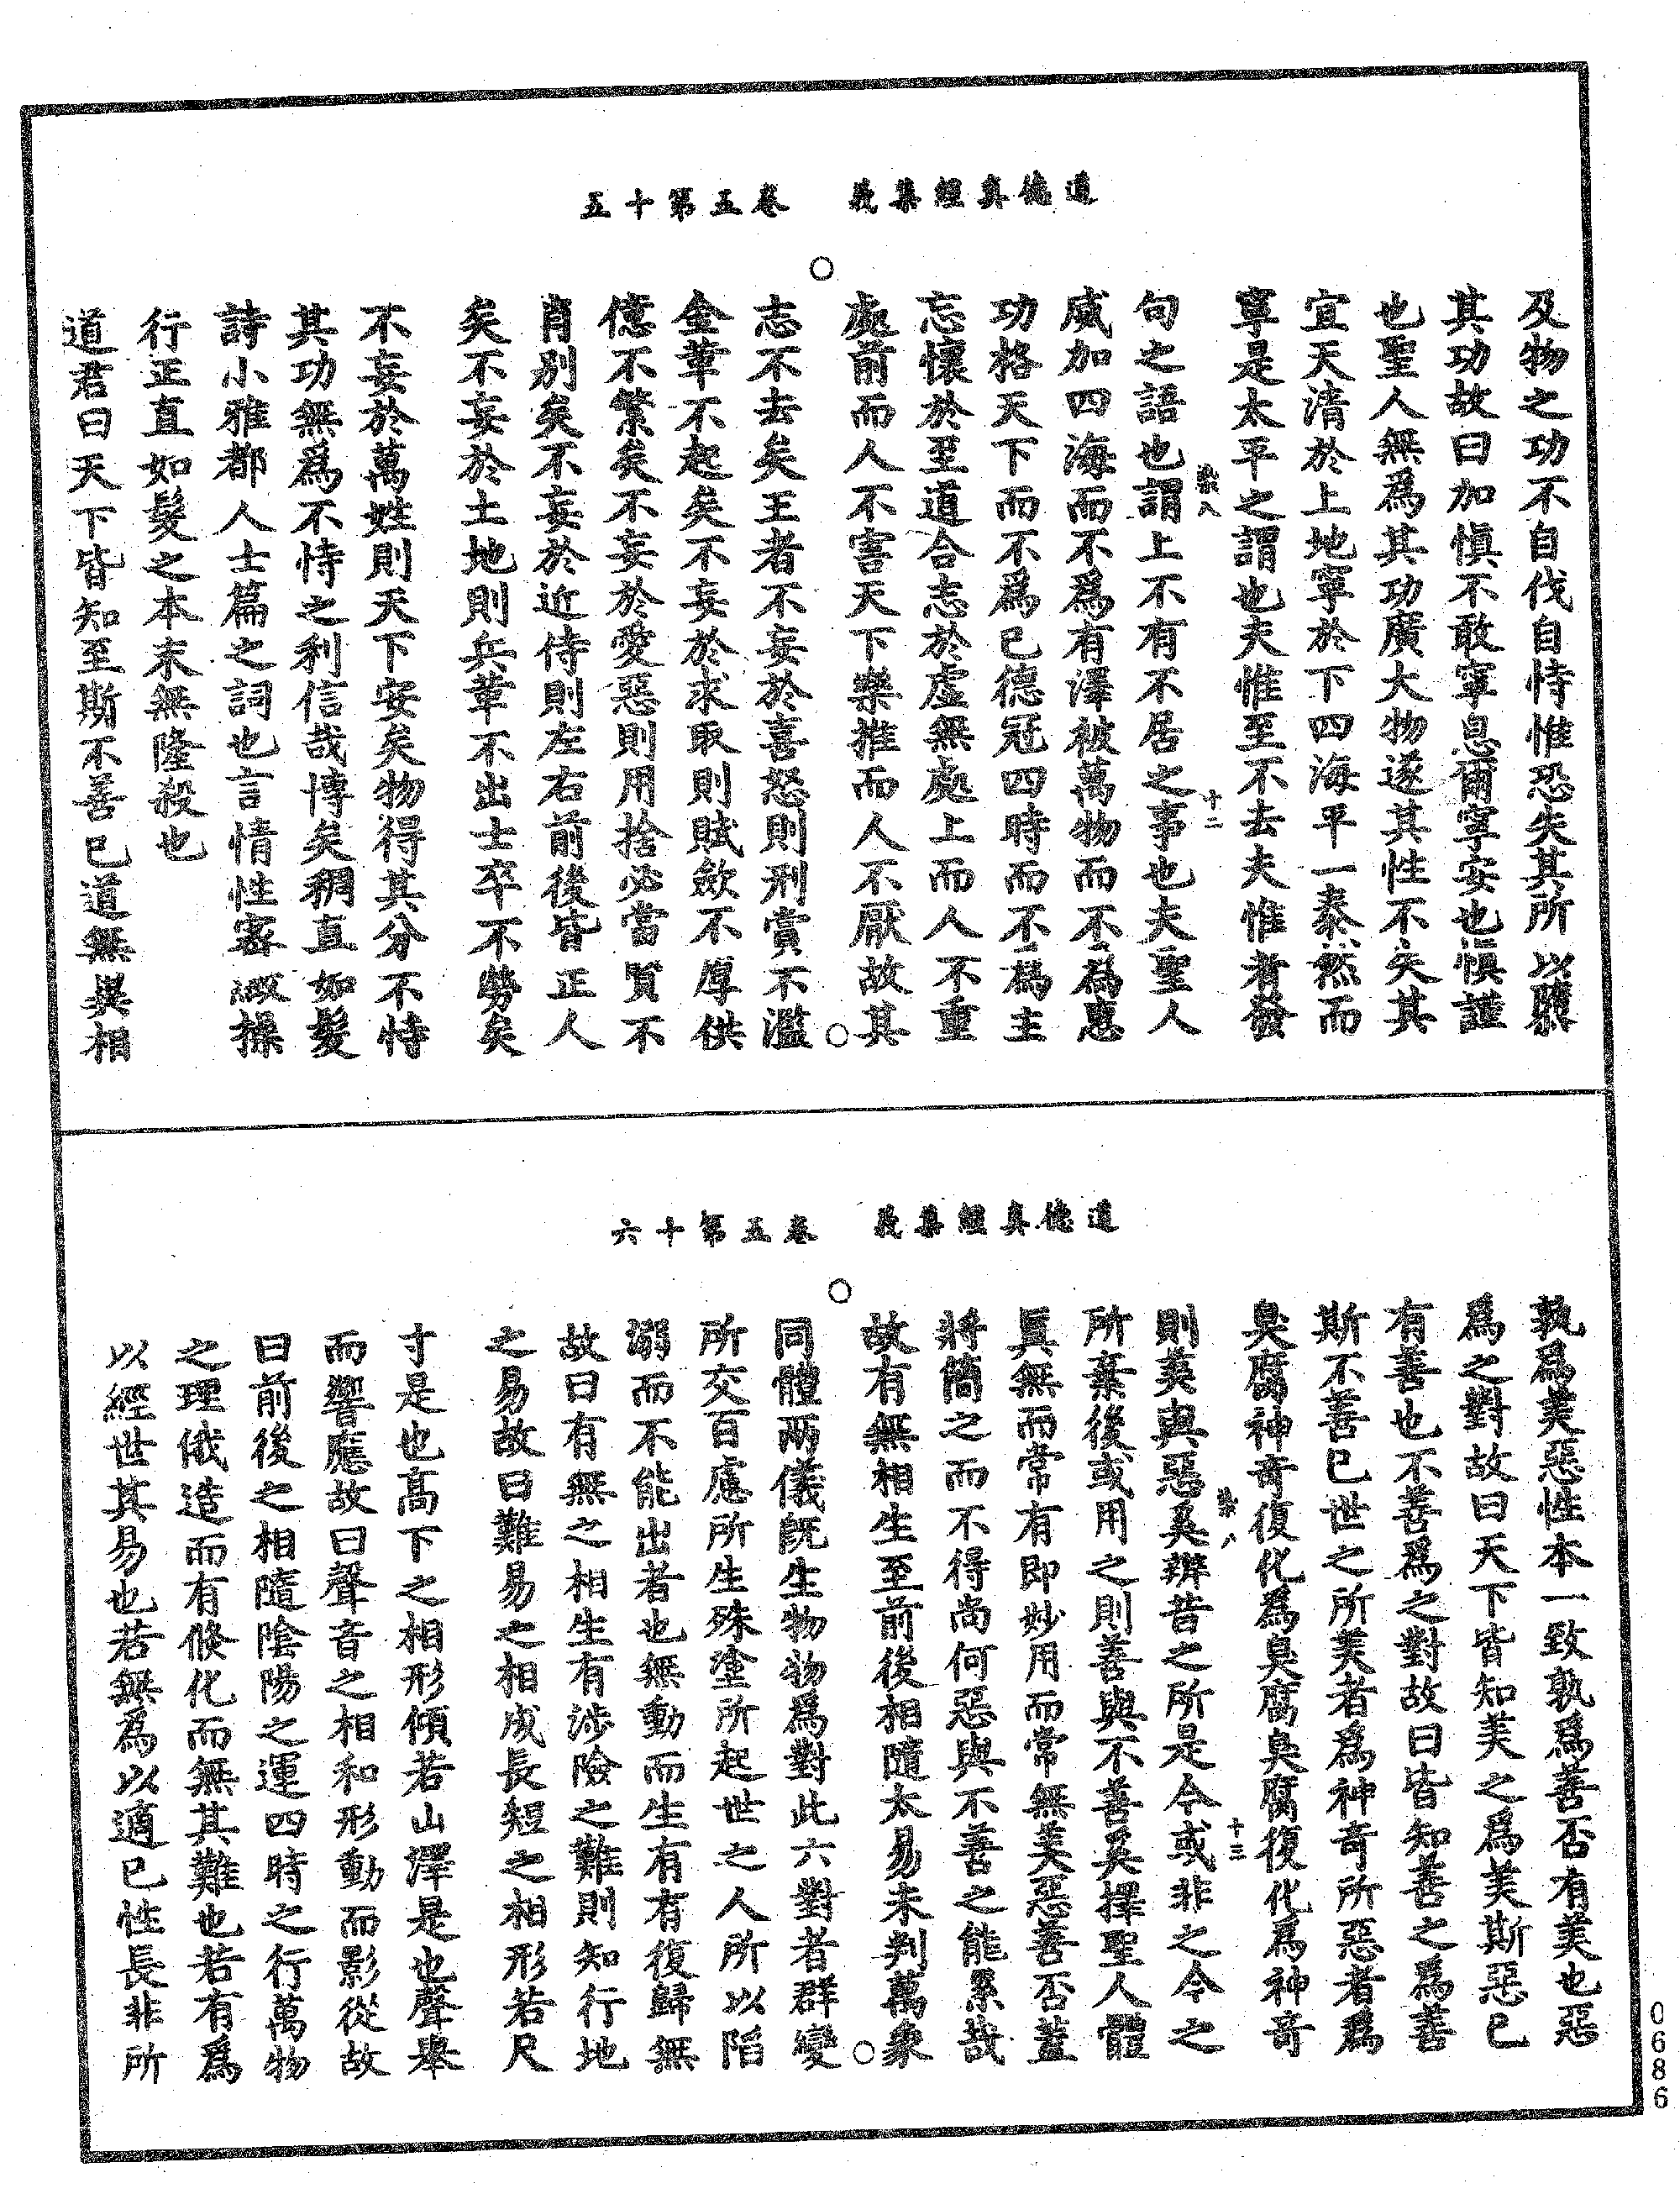 道德真經集義　卷五第十五
及物之功不自伐自恃惟恐失其所以驕
其功故曰加慎不敢寧息爾寧安也慎謹
也聖人無為其功廣大物遂其性不失其
宜天清於上地寧於下四海平一泰然而
寧是太平之謂也夫惟至不去夫惟者發
句之語也謂上不有不居之事也夫聖人
威加四海而不爲有澤被萬物而不爲恩
功格天下而不爲己德冠四時而不爲主
忘懷於至道合志於虛無處上而人不重
處前而人不害天下樂推而人不厭故其
志不去矣王者不妄於喜怒則刑賞不濫
金革不起矣不妄於求取則賦歛不厚供
億不繁矣不妄於愛惡則用捨必當賢不
肖別矣不妄於近侍則左右前後皆正人
矣不妄於土地則兵革不出士卒不勞矣
不妄於萬姓則天下安矣物得其分不恃
其功無爲不恃之利信哉博矣稠直如髮
詩小雅都人士篇之詞也言情性審緻操
行正直如髮之本末無隆殺也
道君曰天下皆知至斯不善已道無異相
道德真經集義　卷五第十六
孰爲美惡性本一致孰爲善否有美也惡
爲之對故曰天下皆知美之爲美斯惡已
有善也不善爲之對故曰皆知善之爲善
斯不善已世之所美者爲神奇所惡者爲
臭腐神奇復化爲臭腐臭腐復化爲神奇
則美與惡奚辨昔之所是今或非之今之
所棄後或用之則善與不善奚擇聖人體
真無而常有即妙用而常無美惡善否蓋
將簡之而不得尚何惡與不善之能累哉
故有無相生至前後相隨太易未判萬象
同體兩儀既生物物爲對此六對者群變
所交百慮所生殊塗所起世之人所以陷
溺而不能出者也無動而生有有復歸無
故曰有無之相生有涉險之難則知行地
之易故曰難易之相成長短之相形若尺
寸是也高下之相形傾若山澤是也聲舉
而響應故曰聲音之相和形動而影從故
曰前後之相隨陰陽之運四時之行萬物
之理俄造而有倏化而無其難也若有爲
以經世其易也若無爲以適已性長非所
十二
十三
0686